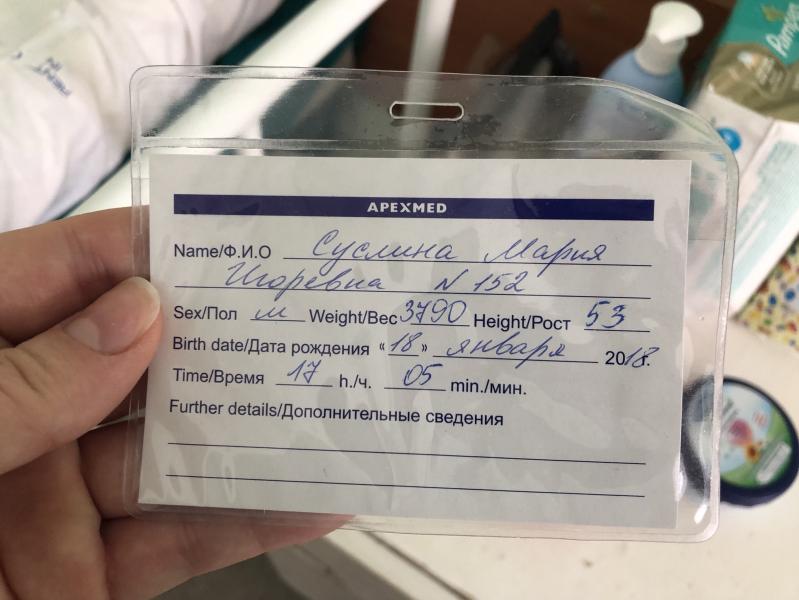 APEXMED
Name/Ф.И.О Суслина Мария
Игоревна N 152
Sex/Пол м Weight/Вес 3790 Height/Рост 53
Birth date/Дата рождения «18» января 2018.
Time/Время 17 h./ч. 05 min./мин.
Further details/Дополнительные сведения
Pampers